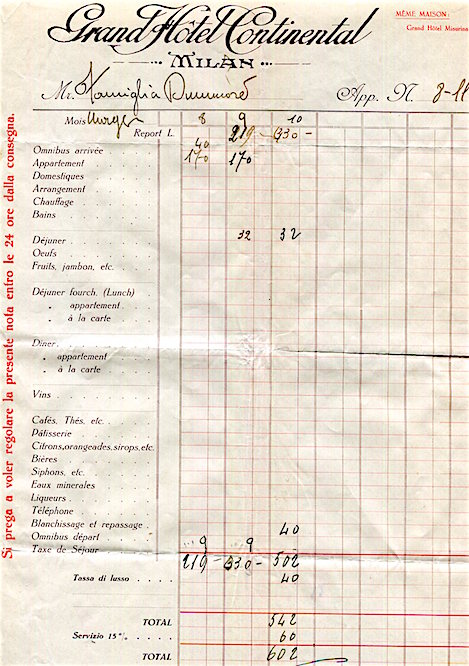 Grand Hôtel Continental
MÊME MAISON:
Grand Hôtel Misurina
MILAN
Mr. Famiglia App. N. 8-11
Mois 8 9 10
Report L. 219 430 -
Omnibus arrivée 40
Appartement 170 170
Domestiques
Arrangement
Chauffage
Bains
Déjuner 32 32
Oeufs
Fruits, jambon, etc.
Déjuner fourch. (Lunch)
" appartement
" à la carte
Diner
" appartement
" à la carte
Vins
Cafés, Thés, etc.
Pâtisserie
Citrons,orangeades,sirops,etc.
Bières
Siphons, etc.
Eaux minerales
Liqueurs
Téléphone
Blanchissage et repassage
Omnibus départ 40
Taxe de Séjour 9 9
219 - 430 - 502
Tassa di lusso 40
TOTAL 542
Servizio 15% 60
TOTAL 602
Si prega a voler regolare la presente nota entro le 24 ore dalla consegna.